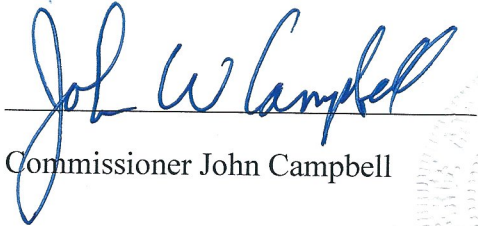 John W Campbell
Commissioner John Campbell